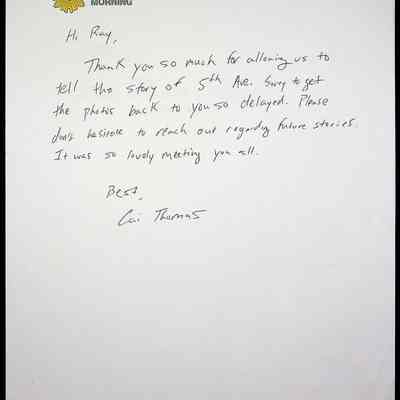 MORNING
Hi Ray,
Thank you so much for allowing us to
tell the story of 5th Ave. Sorry to get
the photos back to you so delayed. Please
don't hesitate to reach out regarding future stories.
It was so lovely meeting you all.
Best,
Cai Thomas